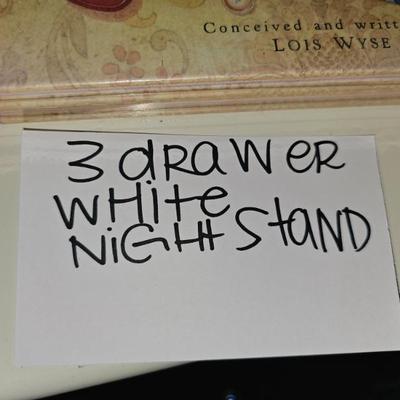 Conceived and writt
Lois Wyse
3 dRAWeR
WHite
NiGHtStaND